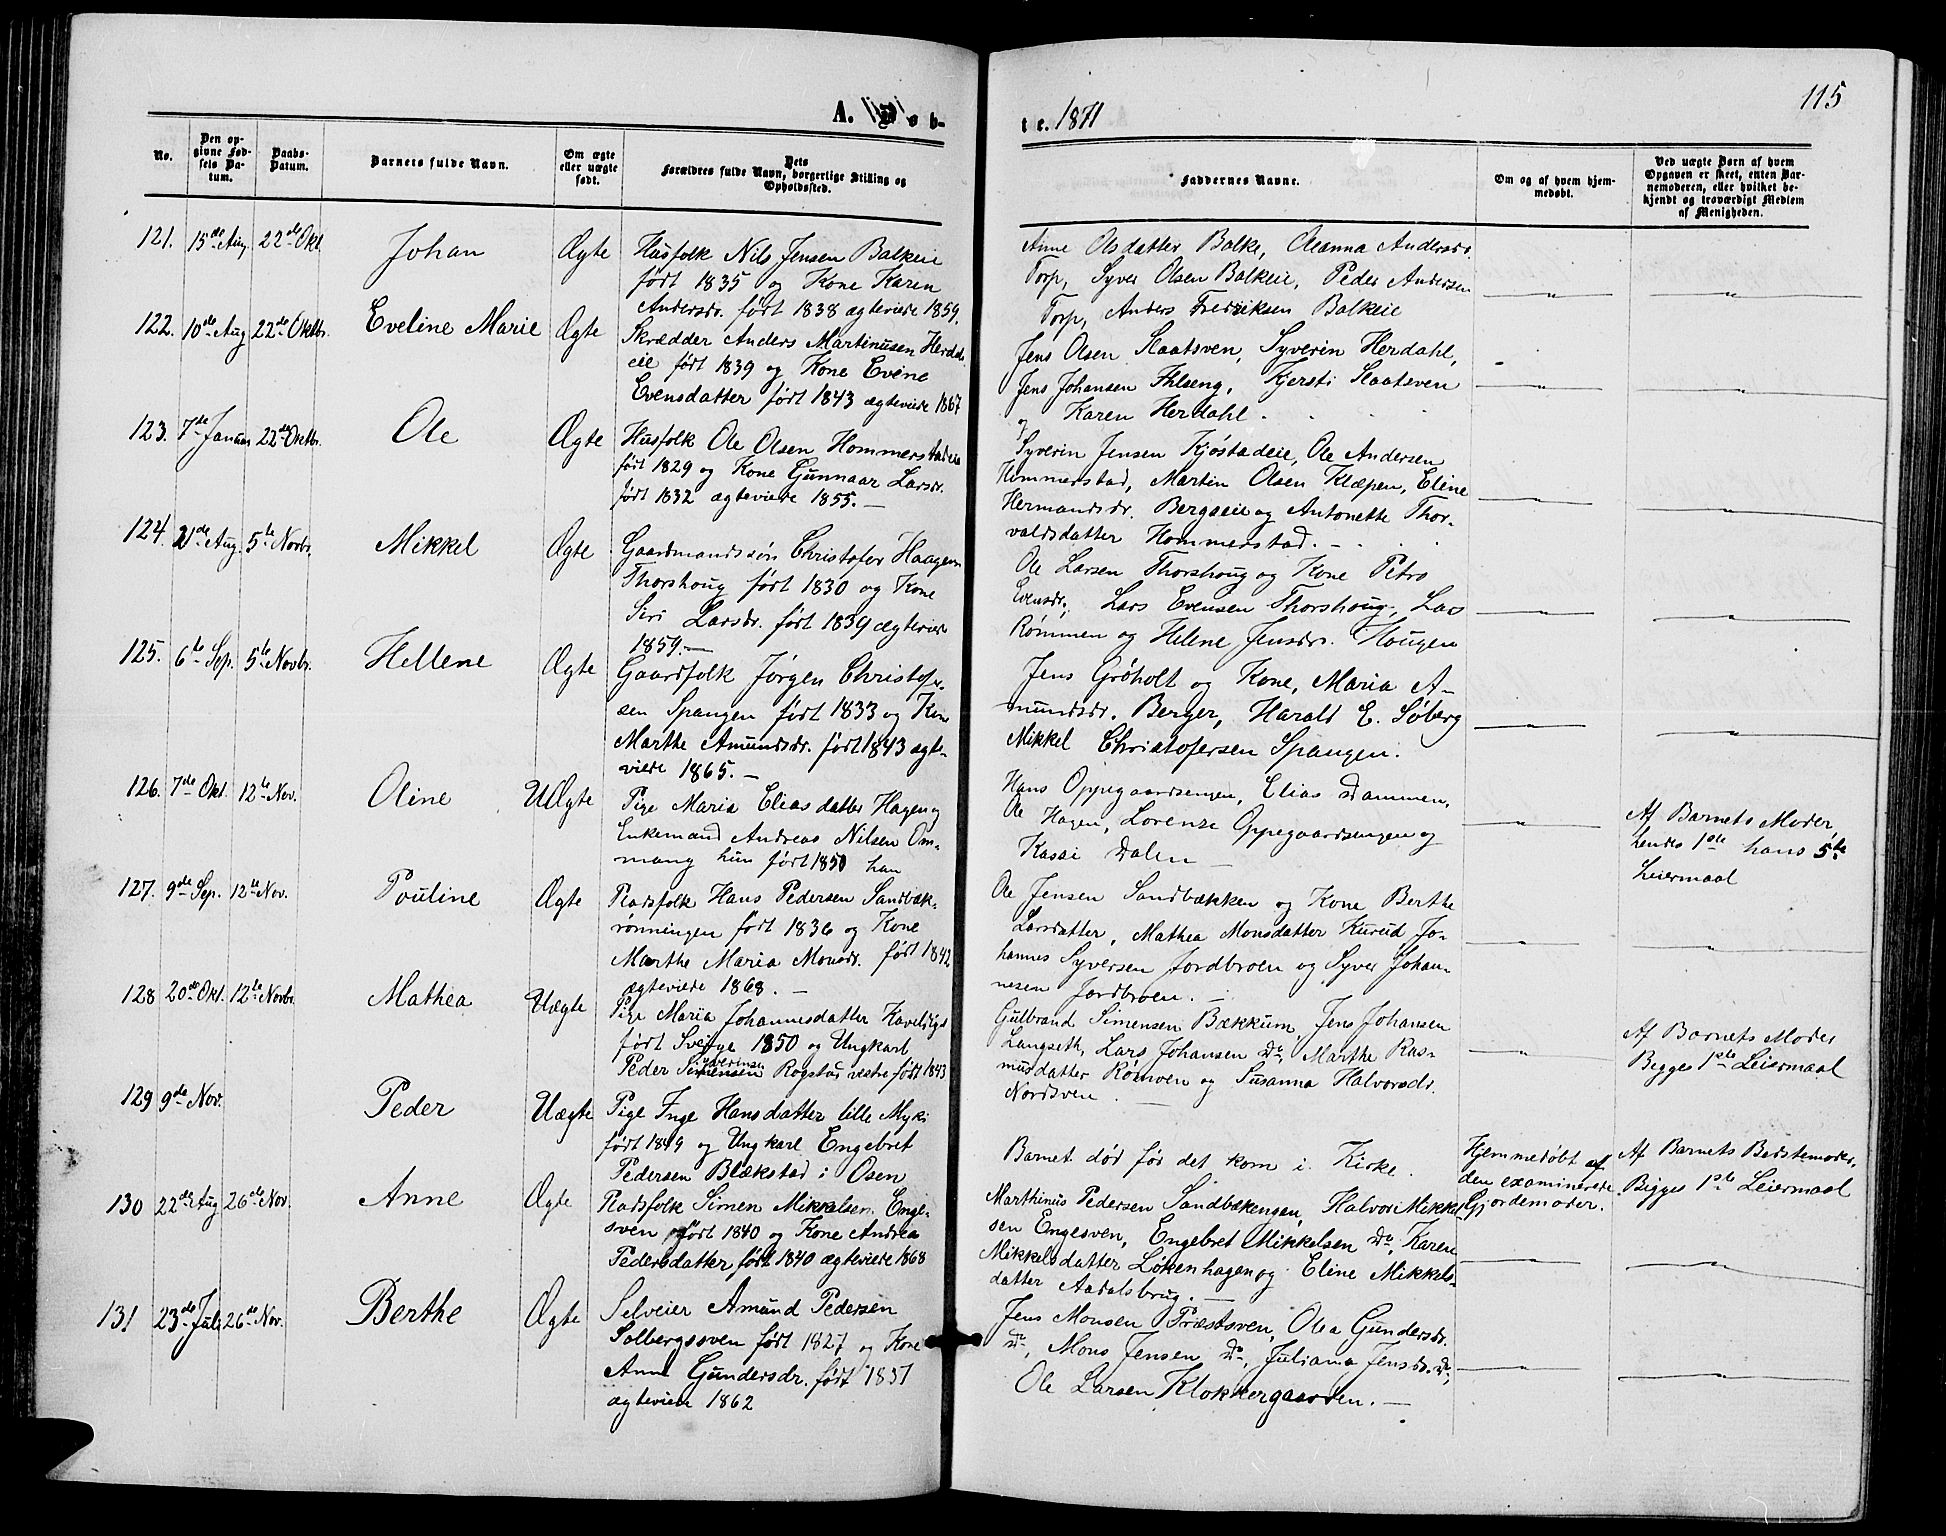 115
A. Døb-
te. 1871
No.
Den op-
givne Fød-
sels Da-
tum.
Daabs-
Datum.
Barnets fulde Navn.
Om ægte
eller uægte
født.
Dets
Forældres fulde Navn, borgerlige Stilling og
Opholdssted.
Faddernes Navne.
Om og af hvem hjem-
medøbt.
Ved uægte Børn af hvem
Opgaven er skeet, enten Bar-
nemoderen, eller hvilket be-
kjendt og troværdigt Medlem
af Menigheden.
121. 15de Aug. 22de Okt. Johan Ægte
Husfolk Nils Jensen Balkeie
født 1835 og Kone Karen
Andersdr. født 1838 ægteviede 1859.
Anne Olsdatter Balke, Oleanna Andersdr.
Torp, Syver Olsen Balkeie, Peder Andersen
Torp, Anders Fredriksen Balkeie
122. 10de Aug 22de Oktbr. Eveline Marie Ægte
Skrædder Anders Martinusen Herdahl
eie født 1839 og Kone Evine
Evensdatter født 1843 ægteviede 1867
Jens Olsen Slaatsven, Syverin Herdahl,
Jens Johansen Ihlseng, Kjersti Slaatsven
og Karen Herdahl.
123. 7de Januar 22de Oktbr. Ole Ægte
Husfolk Ole Olsen Hommerstadeie
født 1829 og Kone Gunnaar Larsdr.
født 1832 ægteviede 1855. —
Syverin Jensen Kjøstadeie, Ole Andersen
Hommerstad, Martin Olsen Klæpen, Eline
Hermandsdr. Bergseie og Antonette Thor-
valdsdatter Hommerstad. —
124. 21de Aug. 5te Novbr. Mikkel Ægte
Gaardmandssøn Christofer Haagens
Thorshoug født 1830 og Kone
Siri Larsdr. født 1839 ægteviede
1859. —
Ole Larsen Thorshoug og Kone Petro
Evensdr., Lars Evensen Thorshoug, Lars
Rømmen og Helene Jensdr. Hougen
125. 6te Sep. 5te Novbr. Hellene Ægte
Gaardfolk Jørgen Christofer-
sen Spangen født 1833 og Kone
Marthe Amundsdr. født 1843 ægte-
viede 1865. —
Jens Grøholt og Kone, Maria A-
mundsdr. Berger, Harald E. Søberg
Mikkel Christofersen Spangen.
126. 7de Okt. 12te Nov. Oline UÆgte
Pige Maria Eliasdatter Hagen og
Enkemand Andreas Nilsen Om-
mang hun født 1850 han
Hans Oppegaardsengen, Elias Dammen,
Ole Hagen, Lorense Oppegaardsengen og
Kasai Dalen —
Af Barnets Moder,
hendes 1ste hans 5te
Leiermaal
127. 9de Sep. 12te Nov. Pouline Ægte
Pladsfolk Hans Pedersen Sandbæk-
rønningen født 1836 og Kone
Marthe Maria Monsdr. født 1842
ægteviede 1868. —
Ole Jensen Sandbækken og Kone Berthe
Larsdatter, Mathea Monsdatter Kurud, Jo-
hannes Syversen Jordbroen og Syver Johan-
nesen Jordbroen. —
128 20de Okt. 12te Novbr. Mathea Uægte
Pige Maria Johannesdatter
født Sverge 1850 og Ungkarl
Peder Syverinsen Rogstad vestre født 1843
Gulbrand Simensen Bækkum, Jens Johansen
Langseth, Lars Johansen Do, Marthe Ras-
musdatter Rømoen og Susanna Halvorsdr.
Nordsven. —
Af Barnets Moder
Begges 1ste Leiermaal
129 9de Nov. Peder Uægte
Pige Inge Hansdatter lille Myki
født 1849 og Ungkarl Engebret
Pedersen Blækstad i Osen
Barnet død før det kom i Kirke.
Hjemmedøbt af
den examinerede
Gjordemoder.
Af Barnets Bedstemoder,
Begges 1ste Leiermaal
130 22de Aug 26de Nov. Anne Ægte
Pladsfolk Simen Mikkelsen Enge-
sven født 1840 og Kone Andrea
Pedersdatter født 1840 ægteviede 1868
Marthinus Pedersen Sandbækengen, Halvor Mikkel
sen Engesven, Engebret Mikkelsen Do, Karen
Mikkelsdatter Løkenhagen og Eline Mikkels-
datter Aadalsbrug. —
131 23de Juli 26de Nov. Berthe Ægte
Selveier Amund Pedersen
Solbergssven født 1827 og Kone
Anne Gundersdr. født 1837
ægteviede 1862
Jens Monsen Præstsven, Olea Gundersdr.
Do, Mons Jensen Do, Juliana Jensdr. Do,
Ole Larsen Klokkergaarden. —